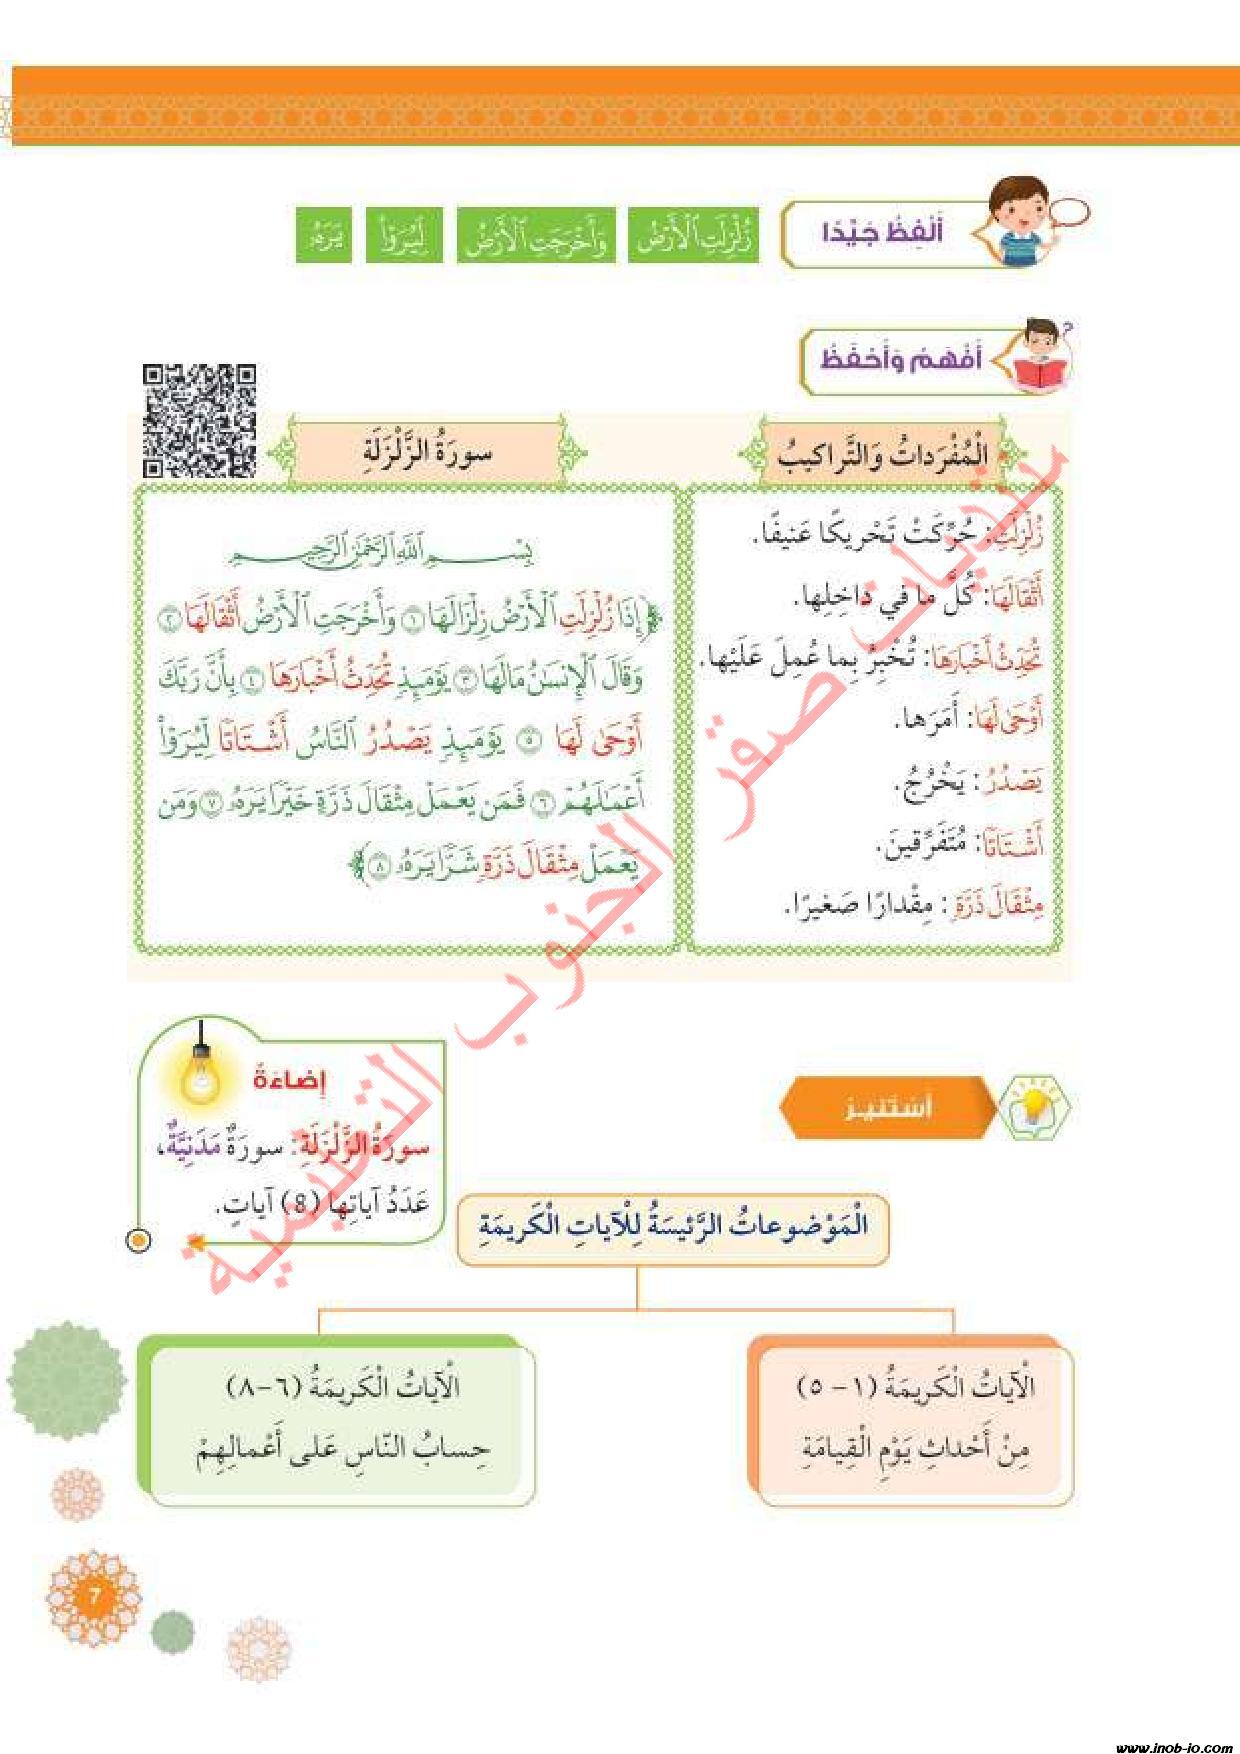 أَلْفِظُ جَيِّدًا
زُلْزِلَتِ ٱلْأَرْضُ
وَأَخْرَجَتِ ٱلْأَرْضُ
لِّيُرَوْا۟
يَرَهُۥ
أَفْهَمُ وَأَحْفَظُ
الْمُفْرَداتُ وَالتَّراكيبُ
زُلْزِلَتِ: حُرِّكَتْ تَحْريكًا عَنيفًا.
أَثْقَالَهَا: كُلَّ ما في داخِلِها.
تُحَدِّثُ أَخْبَارَهَا: تُخْبِرُ بِما عُمِلَ عَلَيْها.
أَوْحَىٰ لَهَا: أَمَرَها.
يَصْدُرُ: يَخْرُجُ.
أَشْتَاتًا: مُتَفَرِّقينَ.
مِثْقَالَ ذَرَّةٍ: مِقْدارًا صَغيرًا.
سورَةُ الزَّلْزَلَةِ
بِسْمِ ٱللَّهِ ٱلرَّحْمَٰنِ ٱلرَّحِيمِ
﴿إِذَا زُلْزِلَتِ ٱلْأَرْضُ زِلْزَالَهَا ١ وَأَخْرَجَتِ ٱلْأَرْضُ أَثْقَالَهَا ٢
وَقَالَ ٱلْإِنسَٰنُ مَا لَهَا ٣ يَوْمَئِذٍ تُحَدِّثُ أَخْبَارَهَا ٤ بِأَنَّ رَبَّكَ
أَوْحَىٰ لَهَا ٥ يَوْمَئِذٍ يَصْدُرُ ٱلنَّاسُ أَشْتَاتًا لِّيُرَوْا۟
أَعْمَٰلَهُمْ ٦ فَمَن يَعْمَلْ مِثْقَالَ ذَرَّةٍ خَيْرًا يَرَهُۥ ٧ وَمَن
يَعْمَلْ مِثْقَالَ ذَرَّةٍ شَرًّا يَرَهُۥ ٨﴾
أَسْتَنيرُ
إِضاءَةٌ
سورَةُ الزَّلْزَلَةِ: سورَةٌ مَدَنِيَّةٌ،
عَدَدُ آياتِها (8) آياتٍ.
الْمَوْضوعاتُ الرَّئيسَةُ لِلْآياتِ الْكَريمَةِ
الْآياتُ الْكَريمَةُ (١- ٥)
مِنْ أَحْداثِ يَوْمِ الْقِيامَةِ
الْآياتُ الْكَريمَةُ (٦-٨)
حِسابُ النّاسِ عَلى أَعْمالِهِمْ
منتديات صقر الجنوب التعليمية
7
www.jnob-jo.com